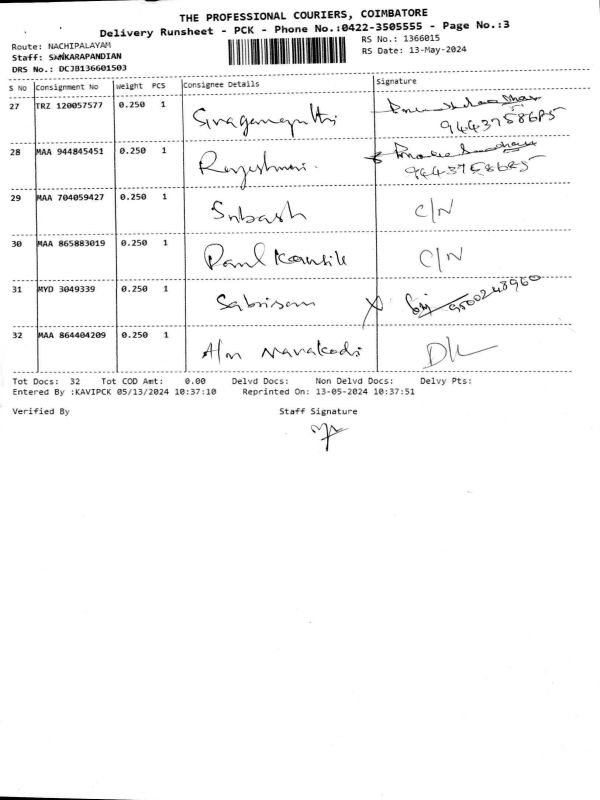 THE PROFESSIONAL COURIERS, COIMBATORE
Delivery Runsheet - PCK - Phone No.:0422-3505555 - Page No.:3
Route: NACHIPALAYAM
RS No.: 1366015
Staff: SANKARAPANDIAN
RS Date: 13-May-2024
DRS No.: DCJB136601503
S No Consignment No Weight PCS Consignee Details Signature
27 TRZ 120057577 0.250 1
9443758685
28 MAA 944845451 0.250 1 Rajeshwari.
9443758685
29 MAA 704059427 0.250 1 Subash C/N
30 MAA 865883019 0.250 1 Paul C/N
31 MYD 3049339 0.250 1 X 9500248960
32 MAA 864404209 0.250 1 A/m D/L
Tot Docs: 32 Tot COD Amt: 0.00 Delvd Docs: Non Delvd Docs: Delvy Pts:
Entered By :KAVIPCK 05/13/2024 10:37:10 Reprinted On: 13-05-2024 10:37:51
Verified By Staff Signature